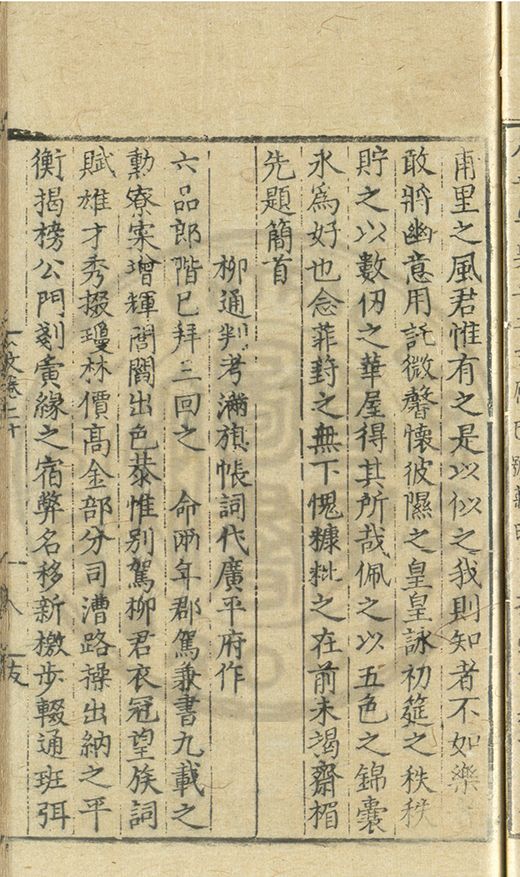 甫里之風君惟有之是以似之我則知者不如樂
敢將幽意用託微聲懷彼隰之皇皇詠初筵之秩秩
貯之以數仞之華屋得其所哉佩之以五色之錦囊
永為好也念菲葑之無下愧糠粃之在前未竭齋楣
先題簡首
柳通判考滿旗帳詞代廣平府作
六品郎階已拜三回之　命兩年郡駕兼書九載之
勳寮寀增輝閭閻出色恭惟別駕柳君衣冠望族詞
賦雄才秀掇瓊林價高金部分司漕路操出納之平
衡揭榜公門剗夤緣之宿弊名移新檄步輟通班弭